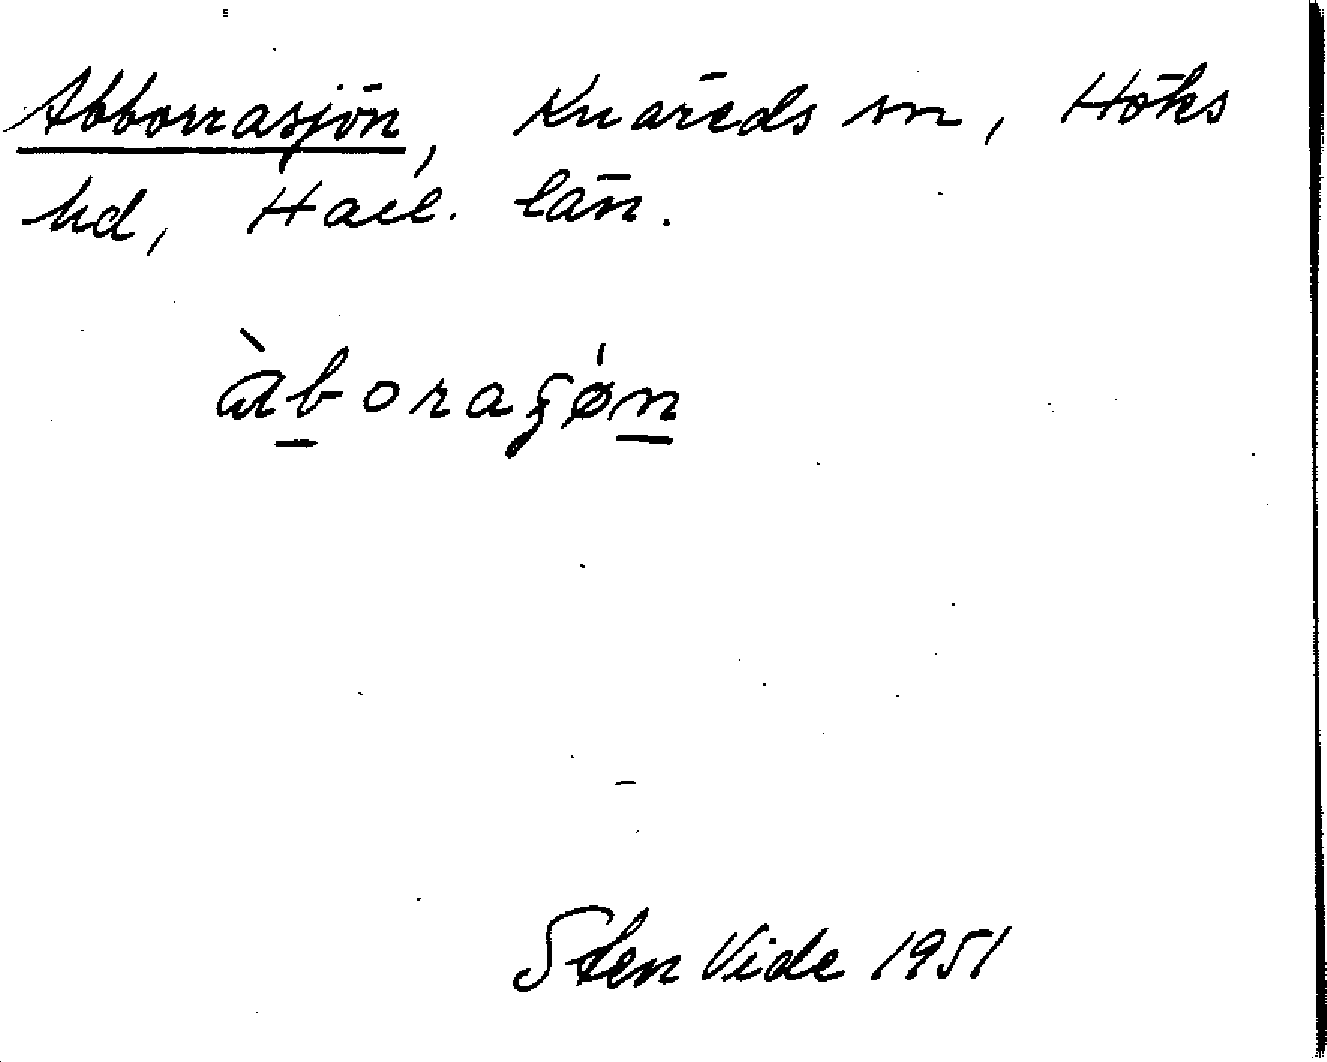 Abborrasjön, Knäreds sn, Höks
hd, Hall. län.
àboraʂǿn
Sten Vide 1951